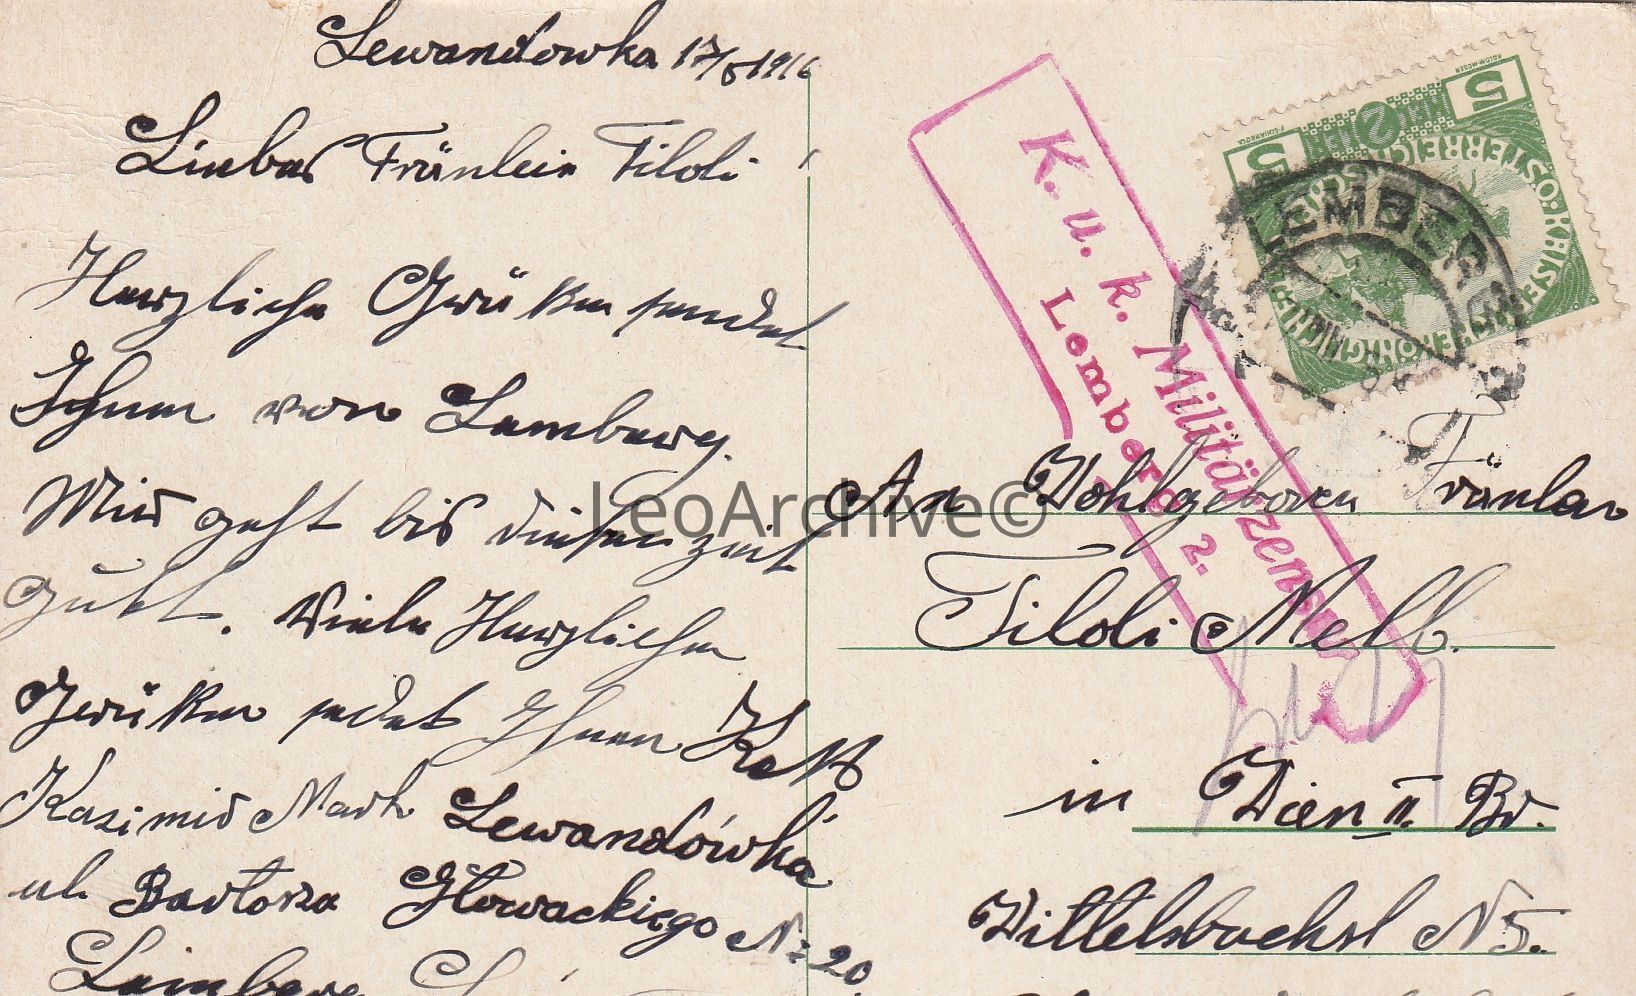 Lewandowka 17/5 1916
Liebes Fräulein Tiloli
Herzliche Grüßen sendet
Ihnen von Lemberg.
Mir geht bis diesen zeit
gutt. Viele Herzlichen
Grüßen sedet Ihnen
Kazimir Mark Lewandówka
ul. Bartosza Głowackiego Nr 20
Lemberg
K. u. k. Militärzensur
Lemberg 2.
5
5
ÖSTERREICH
LEMBERG
An Wohlgeboren Fräulein
Tiloli Melb.
in Wien II. Br.
Wittelsbachst N 5.
LeoArchive©